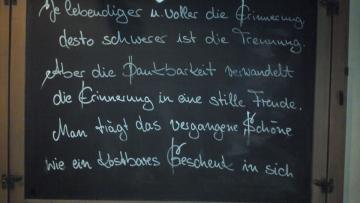 Je lebendiger u. voller die Erinnerung,
desto schwerer ist die Trennung.
Aber die Dankbarkeit verwandelt
die Erinnerung in eine stille Freude.
Man trägt das vergangene Schöne
wie ein kostbares Geschenk in sich